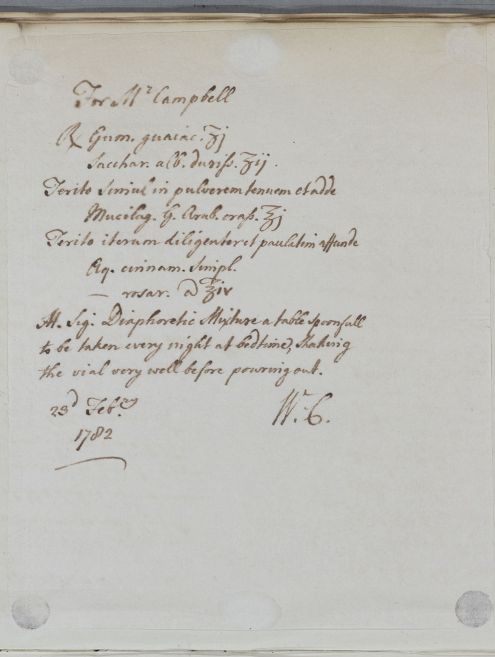 For Mr. Campbell
℞ Gum. guaiac. ʒj
Sacchar. alb. duriss. ʒij.
Terito simul in pulverem tenuem et adde
Mucilag. G. Arab. crass. ℥j
Terito iterum diligenter et paulatim affunde
Aq. cinnam. simpl.
— rosar. a ℥iv
M. Sig. Diaphoretic Mixture a table spoonfull
to be taken every night at bedtime, shaking
the vial very well before pouring out.
23d Febry
Wm. C.
1782